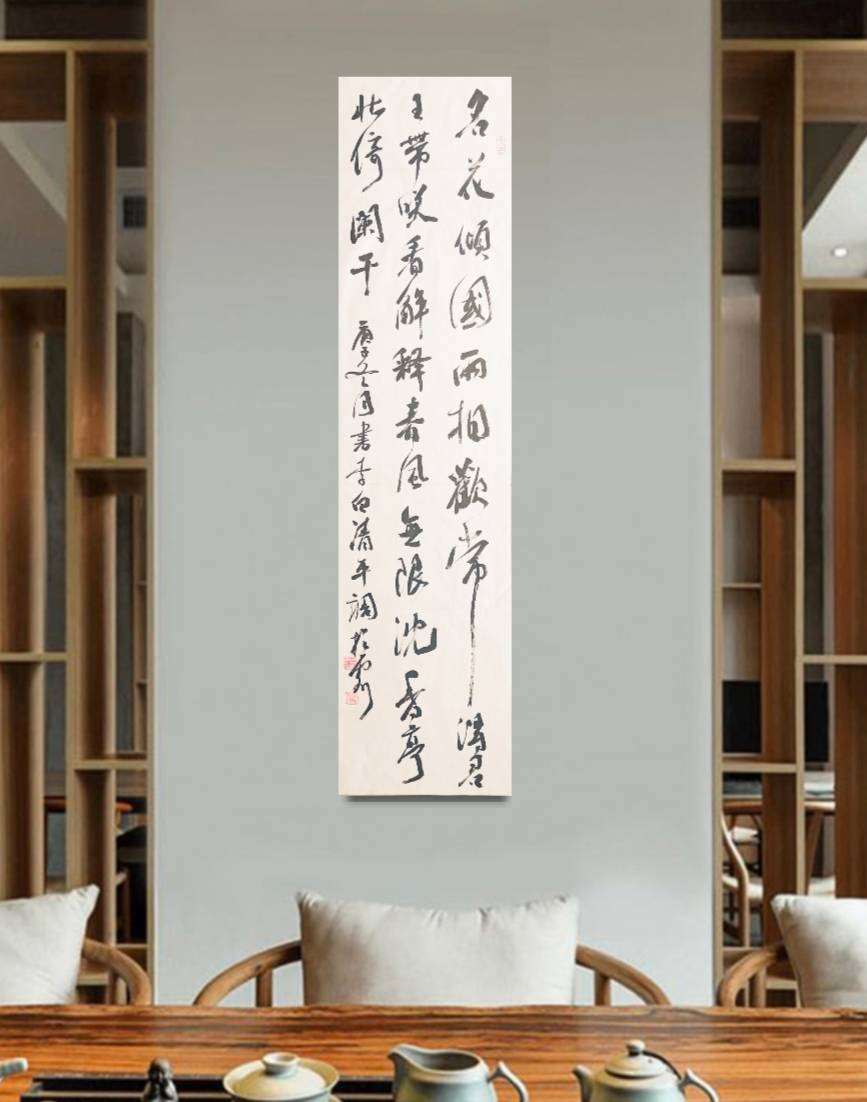 名花傾國兩相歡常得君
王帶咲看解釋春風無限沈香亭
北倚闌干 庚子冬月書李白清平調於